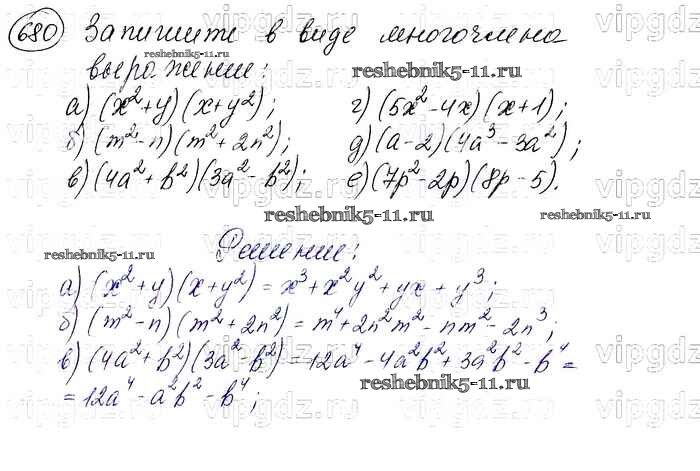 680 Запишите в виде многочлена
выражение:
а) (x²+y)(x+y²); г) (5x²-4x)(x+1);
б) (m²-n)(m²+2n²); д) (a-2)(4a³-3a²);
в) (4a²+b²)(3a²-b²); е) (7p²-2p)(8p-5).
Решение:
а) (x²+y)(x+y²) = x³+x²y²+yx+y³;
б) (m²-n)(m²+2n²) = m⁴+2n²m²-nm²-2n³;
в) (4a²+b²)(3a²-b²) = 12a⁴-4a²b²+3a²b²-b⁴=
= 12a⁴-a²b²-b⁴;
reshebnik5-11.ru
reshebnik5-11.ru
reshebnik5-11.ru
reshebnik5-11.ru
reshebnik5-11.ru
reshebnik5-11.ru
vipgdz.ru